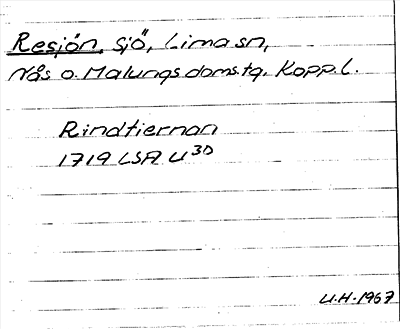 Resjön, sjö, Lima sn,
Nås o. Malungs doms.tg. Kopp.l.
Rindtiernan
1719 LSA U³ᴰ
U.H. 1967